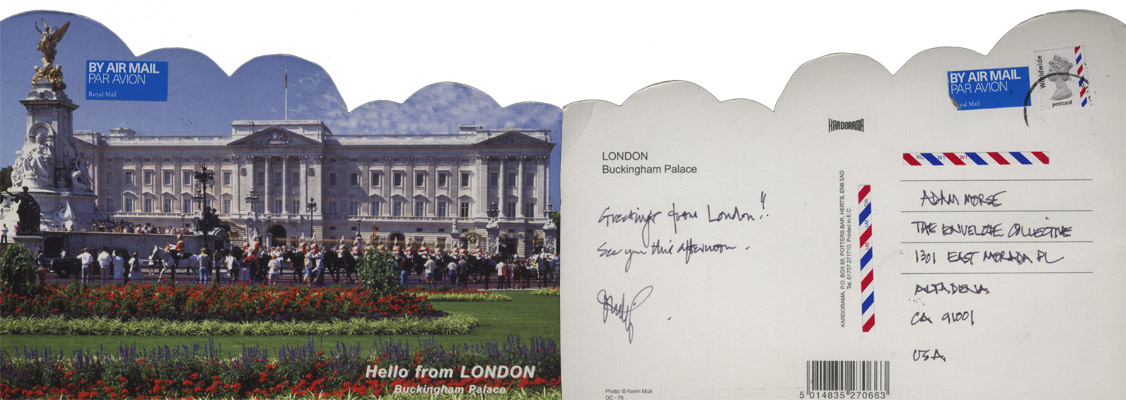 BY AIR MAIL
PAR AVION
Royal Mail
Hello from LONDON
Buckingham Palace
LONDON
Buckingham Palace
Greetings from London!!
See you this afternoon.
Photo: © Kevin Muir
DC - 76
KARDORAMA
KARDORAMA, P.O. BOX 85, POTTERS BAR, HERTS, EN6 5AD
Tel. 01707 271710. Printed in E.C.
5 014835 270663
BY AIR MAIL
PAR AVION
yal Mail
Worldwide
postcard
ADAM MORSE
THE ENVELOPE COLLECTIVE
1301 EAST MORADA PL
ALTADENA
CA 91001
USA